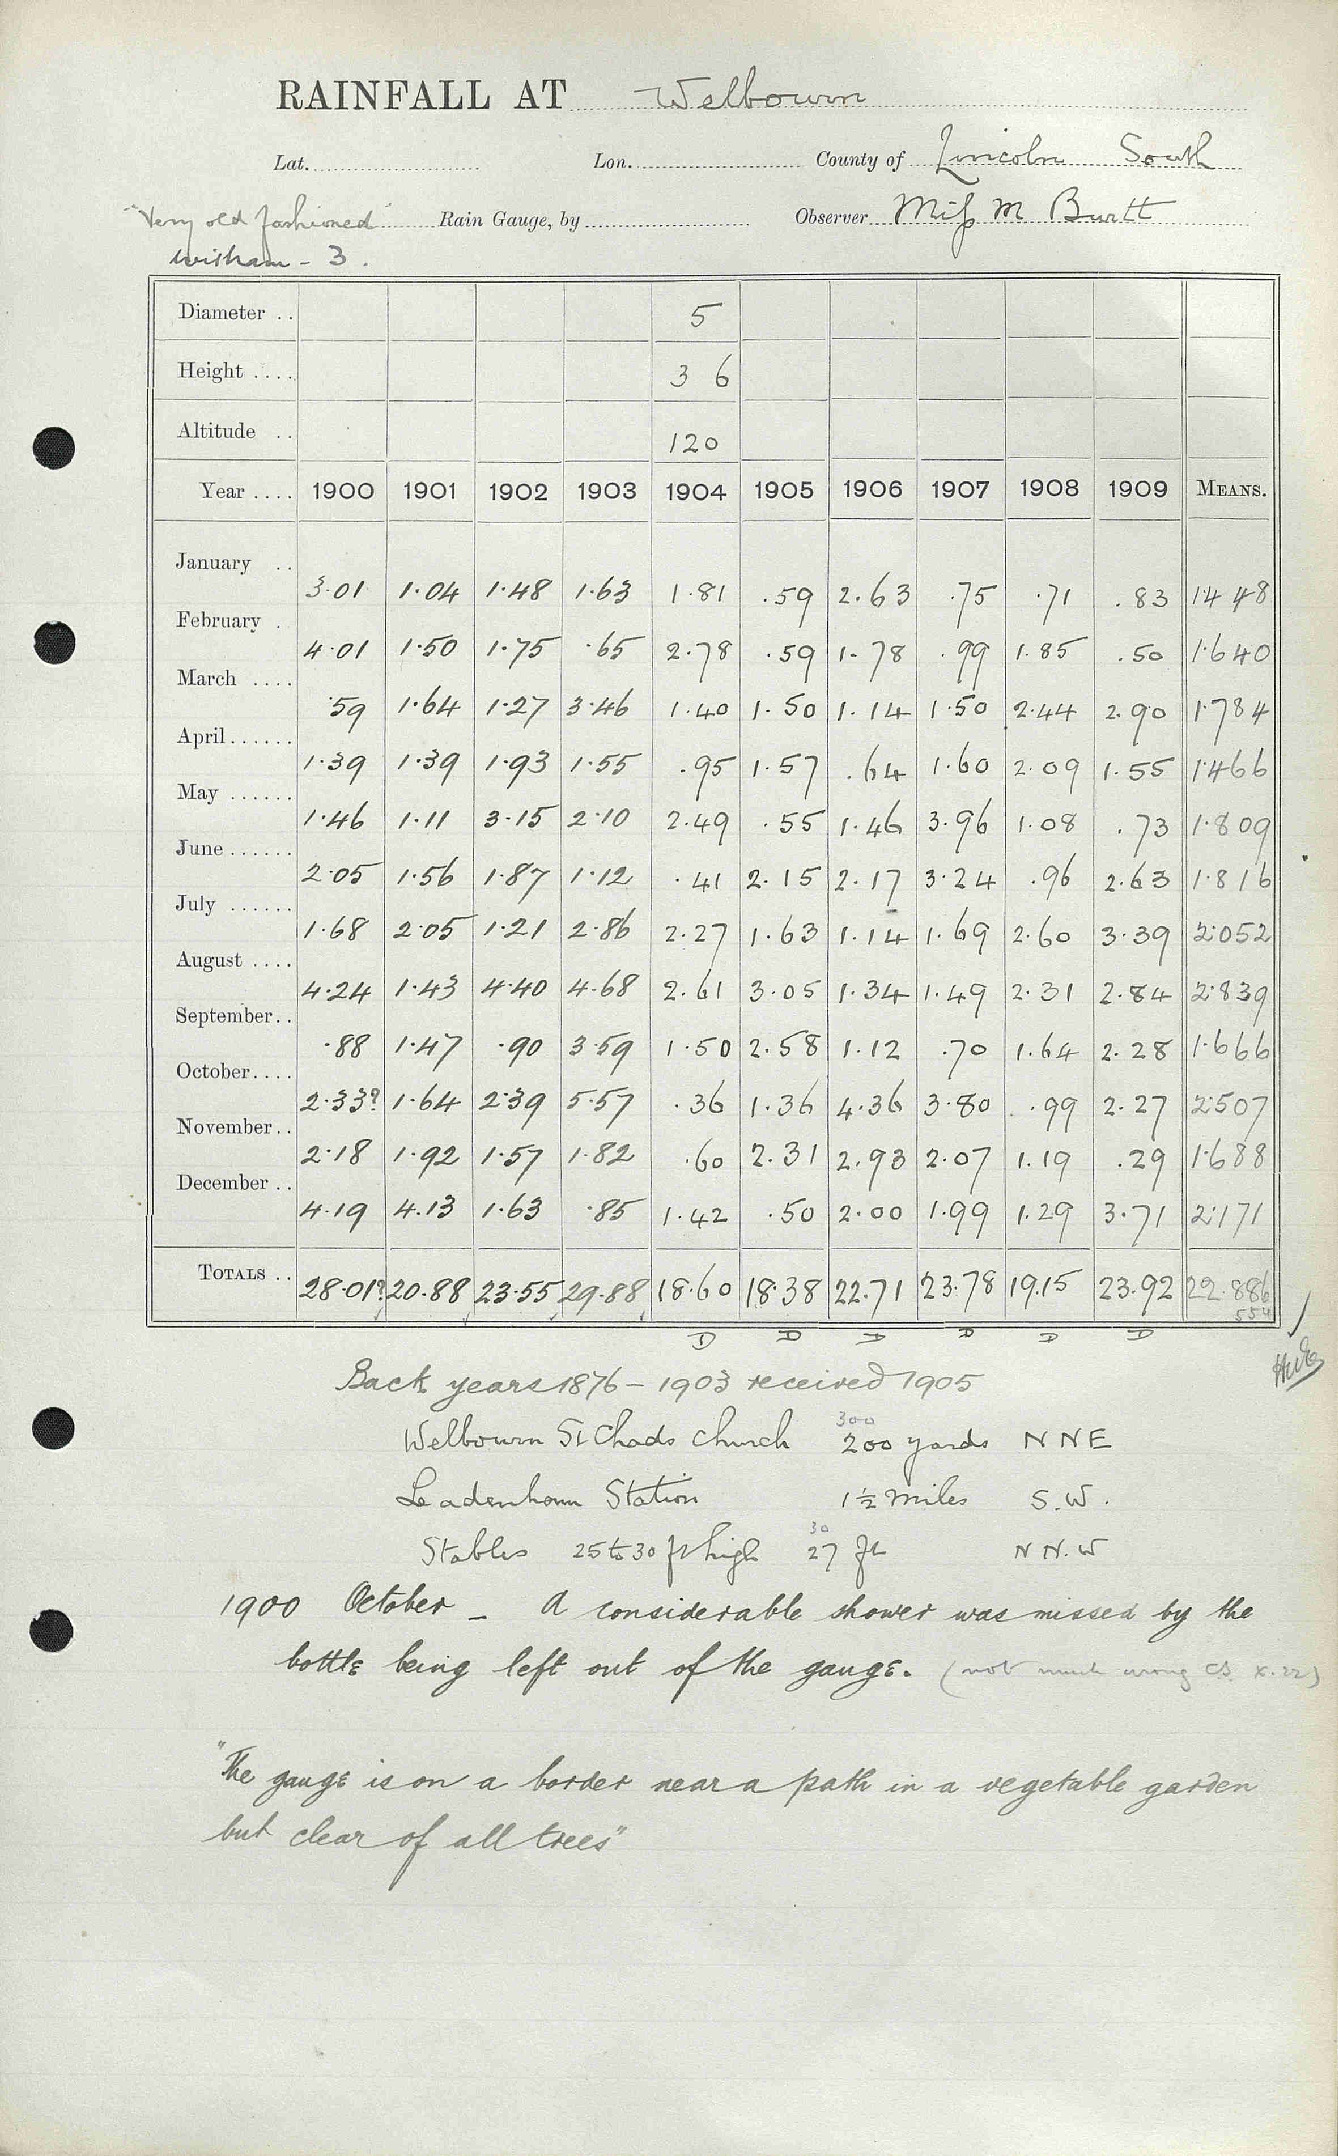 RAINFALL AT Welbourn
Lat. Lon. County of Lincoln South
"Very old fashioned" Rain Gauge, by Observer Miss M Burtt
Witham - 3.
Diameter .. 5
Height .... 3 6
Altitude .. 120
Year .... 1900 1901 1902 1903 1904 1905 1906 1907 1908 1909 MEANS.
January .. 3.01 1.04 1.48 1.63 1.81 .59 2.63 .75 .71 .83 1.448
February . 4.01 1.50 1.75 .65 2.78 .59 1.78 .99 1.85 .50 1.640
March .... .59 1.64 1.27 3.46 1.40 1.50 1.14 1.50 2.44 2.90 1.784
April ...... 1.39 1.39 1.93 1.55 .95 1.57 .64 1.60 2.09 1.55 1.466
May ...... 1.46 1.11 3.15 2.10 2.49 .55 1.46 3.96 1.08 .73 1.809
June ...... 2.05 1.56 1.87 1.12 .41 2.15 2.17 3.24 .96 2.63 1.816
July ...... 1.68 2.05 1.21 2.86 2.27 1.63 1.14 1.69 2.60 3.39 2.052
August .... 4.24 1.43 4.40 4.68 2.61 3.05 1.34 1.49 2.31 2.84 2.839
September.. .88 1.47 .90 3.59 1.50 2.58 1.12 .70 1.64 2.28 1.666
October.... 2.33? 1.64 2.39 5.57 .36 1.36 4.36 3.80 .99 2.27 2.507
November.. 2.18 1.92 1.57 1.82 .60 2.31 2.93 2.07 1.19 .29 1.688
December .. 4.19 4.13 1.63 .85 1.42 .50 2.00 1.99 1.29 3.71 2.171
TOTALS .. 28.01? 20.88 23.55 29.88 18.60 18.38 22.71 23.78 19.15 23.92 22.886
554
D D D D D D
Back years 1876 - 1903 received 1905
300
Welbourn St Chads Church 200 yards N N E
Leadenham Station 1½ miles S.W.
30
Stables 25 to 30 ft high 27 ft N N.W
1900 October - A considerable shower was missed by the
bottle being left out of the gauge. (not much wrong CS. X.22)
"The gauge is on a border near a path in a vegetable garden
but clear of all trees"